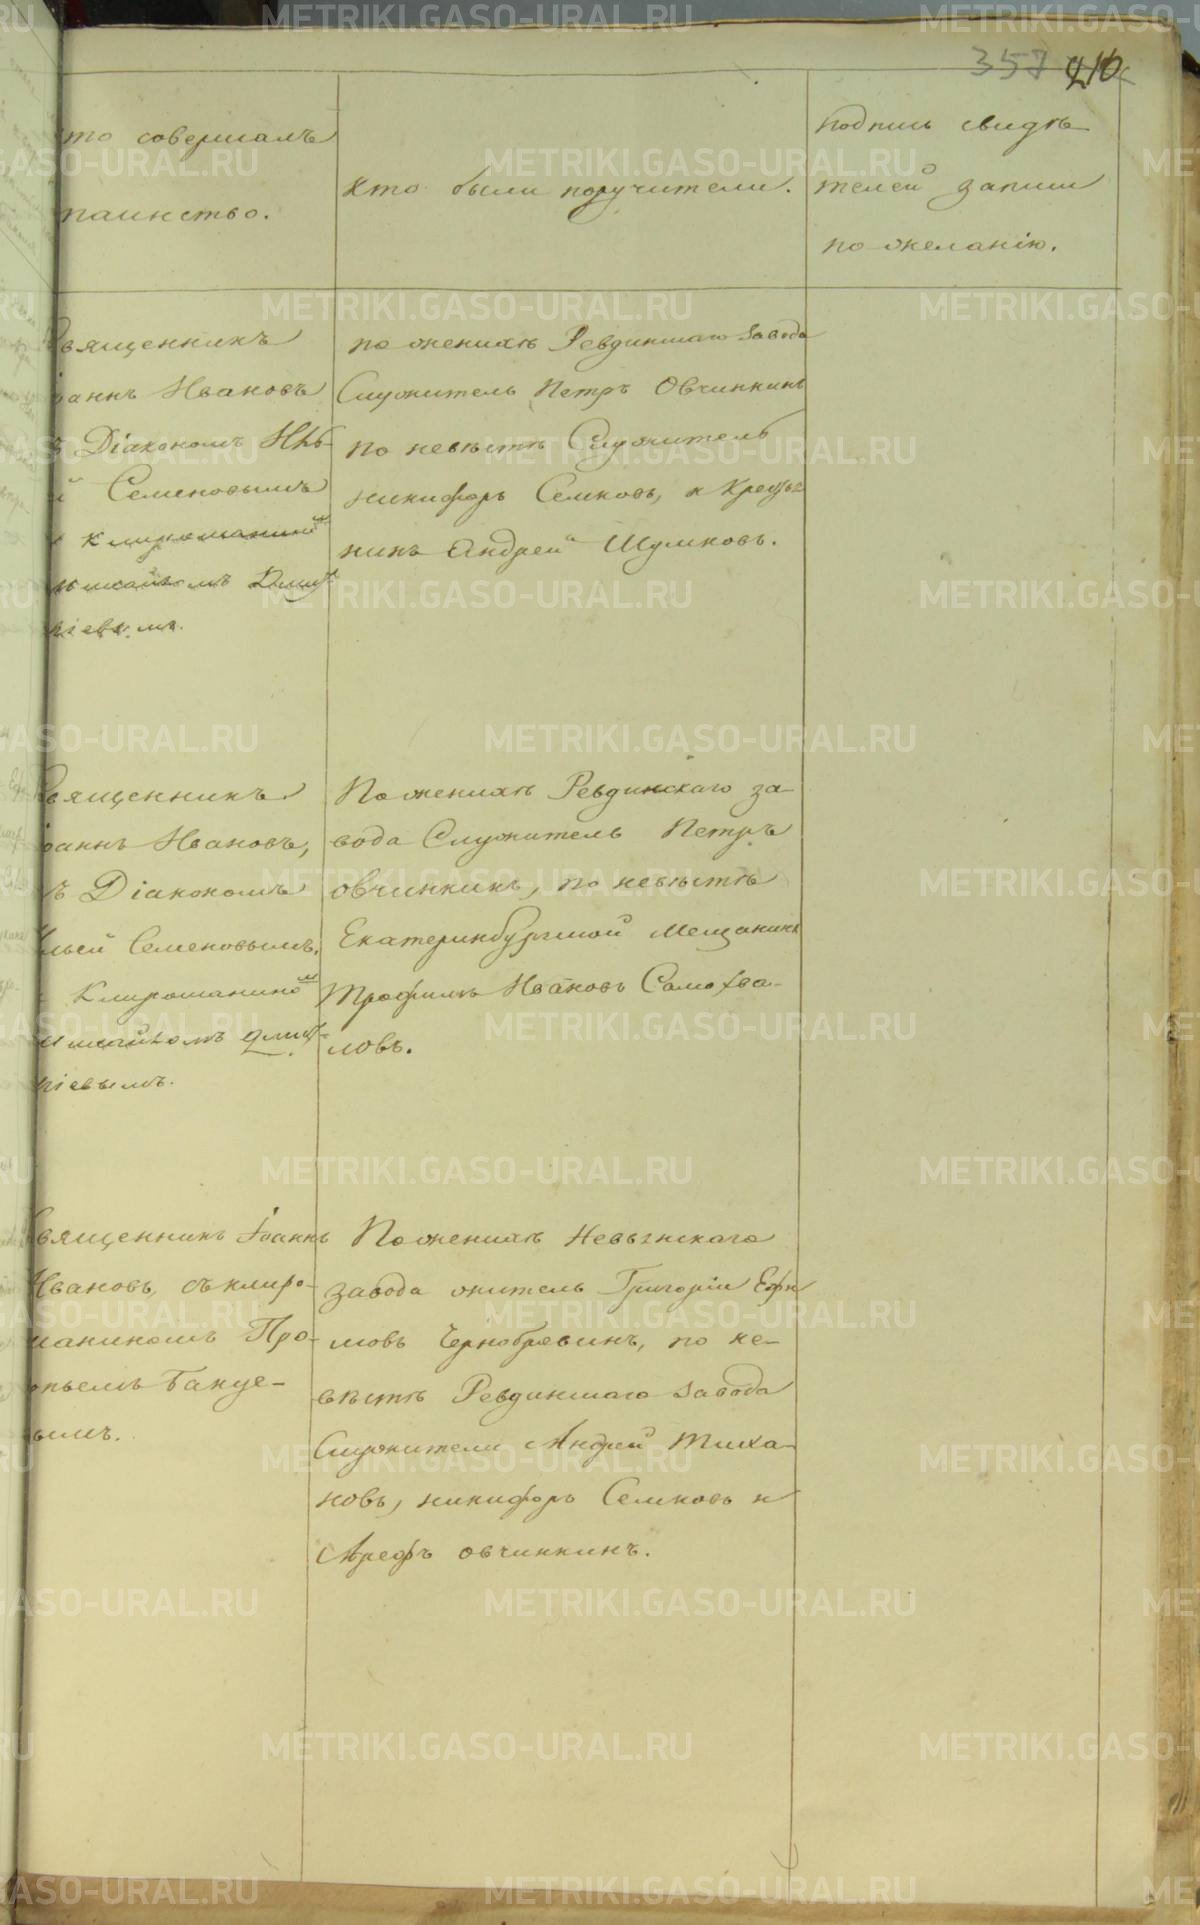 357 210
то совершалъ
таинство.
Кто были поручители.
подпись свидѣ
телей записи
по желанію.
Священникъ
Іоаннъ Ивановъ
Діакономъ
Семеновымъ
Клирошаниномъ
Михаиломъ Дмит
ріевымъ.
по женихѣ Ревдинскаго завода
Служитель Петръ Овчинкинъ
по невѣстѣ Служитель
Никифоръ Семковъ, и Крестья
нинъ Андрей Шумковъ.
Священникъ
Іоаннъ Ивановъ,
ъ Діакономъ
Ильей Семеновымъ,
Клирошаниномъ
Михаиломъ Дмит-
ріевымъ.
По женихѣ Ревдинскаго за-
вода Служитель Петръ
Овчинкинъ, по невѣстѣ
Екатеринбургской Мещанинъ
Трофимъ Ивановъ Самохва-
ловъ.
Священникъ Іоаннъ
Ивановъ, съ клиро-
шаниномъ Про-
опьемъ
ымъ.
По женихѣ Невьянскаго
завода житель Григорій Ефи
мовъ Чернобровинъ, по не-
вѣстѣ Ревдинскаго завода
Служители Андрей Тиха-
новъ, Никифоръ Семковъ и
Арефъ Овчинкинъ.
METRIKI.GASO-URAL.RU